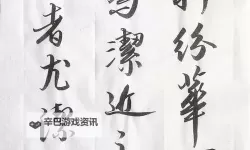 紛華
為潔近
者尤潔
辛巴游戏资讯